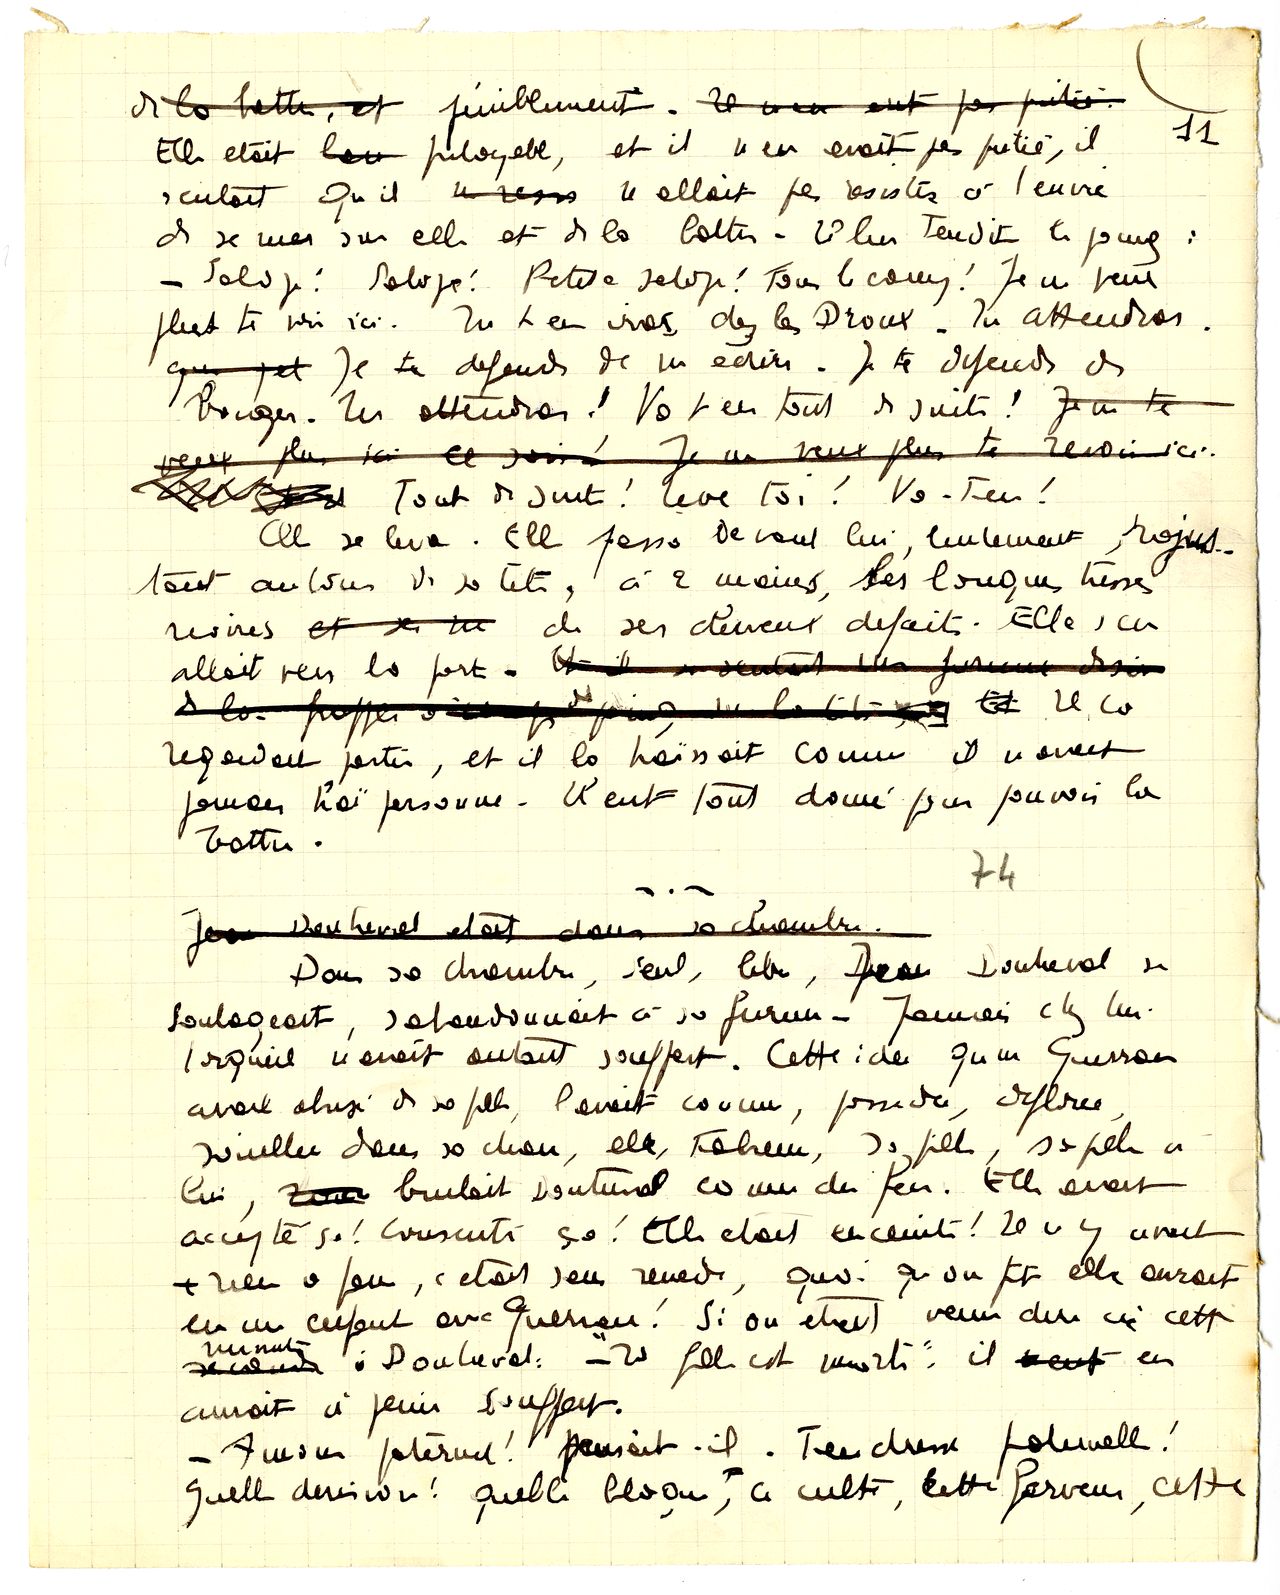 de la battre, et péniblement. Il n en eut pas pitié.
11
Elle etait pitoyable, et il n en avait pas pitié, il
sentait qu il n allait pas resister à l envie
de se ruer sur elle et de la battre. Il lui tendit le poing :
— Salope! Salope! Petite salope! Fous le camp! Je ne veux
plus te voir ici. Tu t en iras chez les Droux. Tu attendras.
Je te defends de m écrire. Je te defends de
bouger. Tu attendras! Va t en tout de suite! Je ne te
veux plus ici ce soir! Je ne veux plus te revoir ici.
Tout de suite! Leve toi! Va-t en!
Elle se leva. Elle passa devant lui, lentement, rajus-
tant autour de sa tete, à 2 mains, les longues tresses
noires et de ses cheveux defaits. Elle s en
allait vers la porte. Et il se sentait un furieux desir
de la frapper du poing, sur la tête Et Il la
regardait partir, et il la haïssait comme il n avait
jamais haï personne. Il eut tout donné pour pouvoir la
battre.
74
Jean Doutreval etait dans sa chambre.
Dans sa chambre, seul, libre, Jean Doutreval se
soulageait, s abandonnait à sa fureur. Jamais chez lui
l orgueil n avait autant souffert. Cette idee qu un Guerran
avait abusé de sa fille, l avait connue, possedée, deflorée,
souillée dans sa chair, elle, Fabienne, sa fille, sa fille à
lui, brulait Doutreval comme du feu. Elle avait
accepté ça! Consenti ça! Elle etait enceinte! Il n y avait
+ rien a faire, c etait sans remede, quoi qu on fit elle aurait
eu un enfant avec Guerran! Si on etait venu dire en cette
minute
seconde à Doutreval: — "Ta fille est morte": il en
aurait à peine souffert.
— Amour paternel! pensait-il. Tendresse paternelle!
Quelle derision! quelle blague, ce culte, cette ferveur, cette